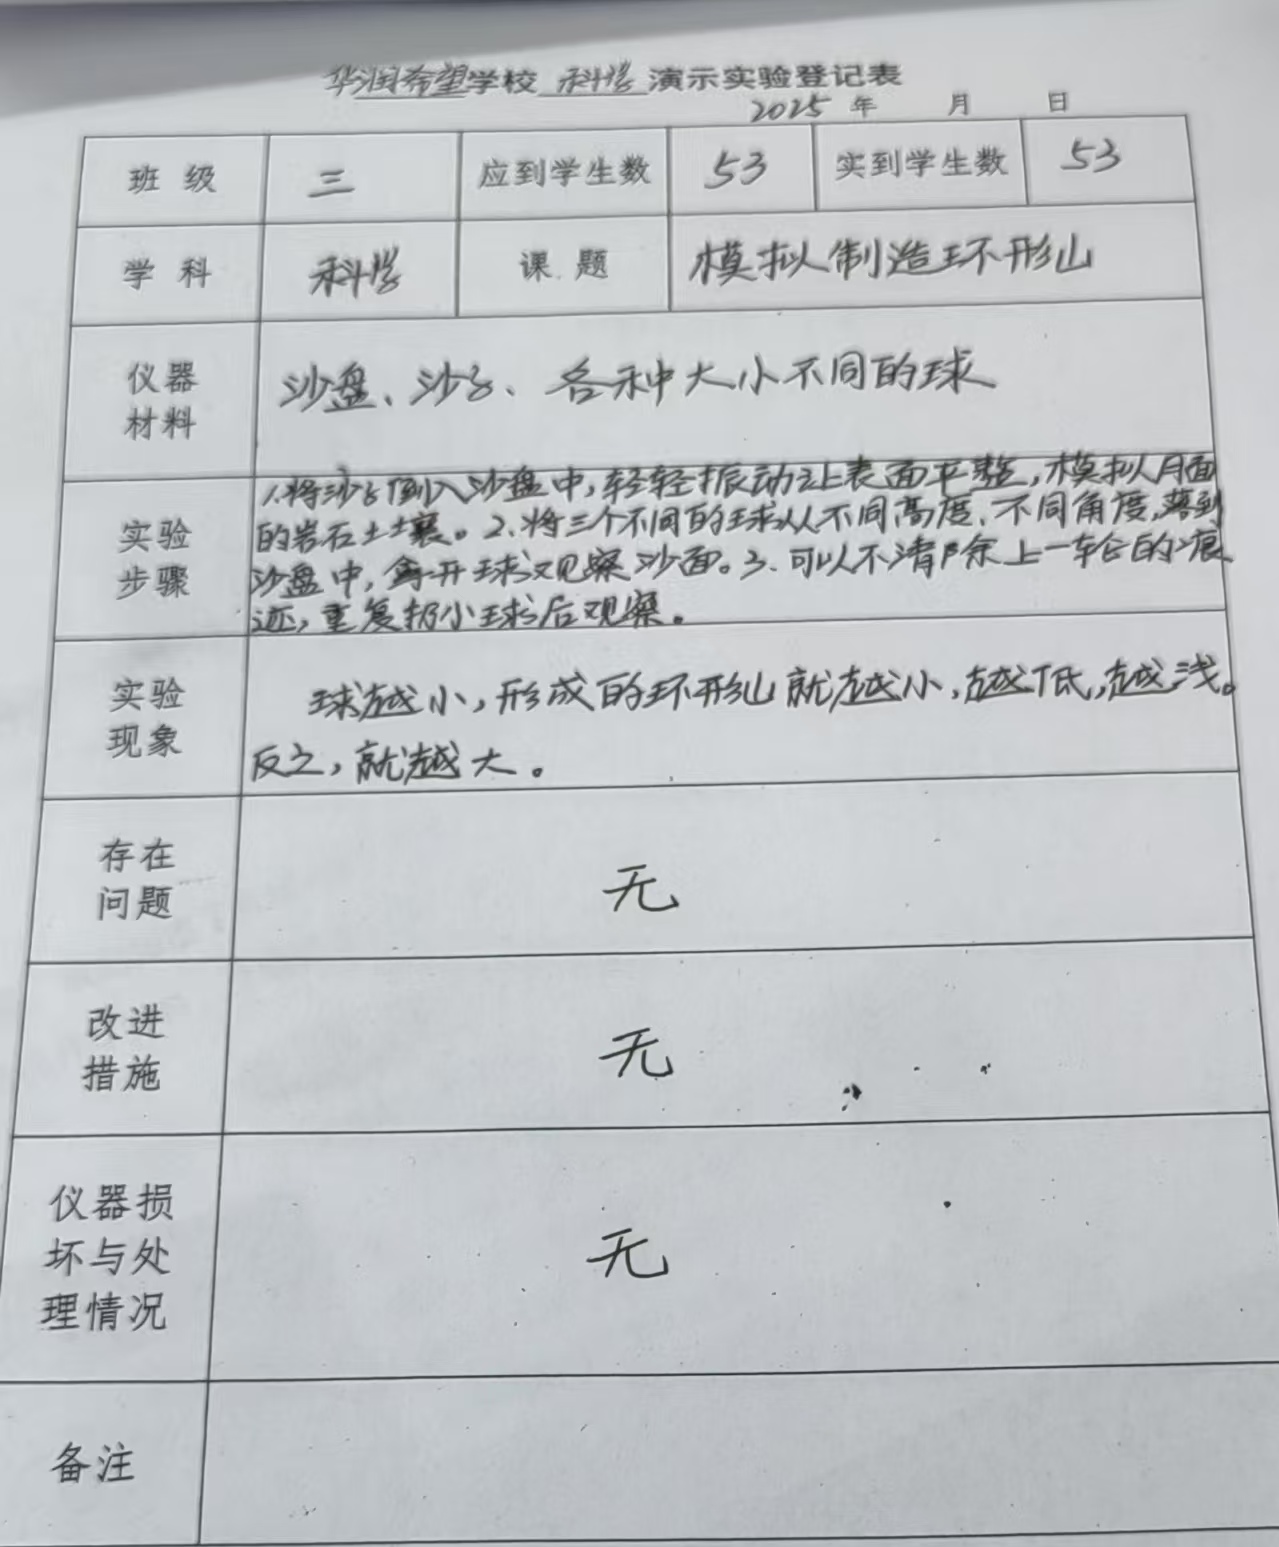 华润希望学校 科学 演示实验登记表
2025 年 月 日
班 级 三 应到学生数 53 实到学生数 53
学 科 科学 课 题 模拟制造环形山
仪器
材料
沙盘、沙子、各种大小不同的球
实验
步骤
1.将沙子倒入沙盘中,轻轻振动让表面平整,模拟月面
的岩石土壤。2.将三个不同的球从不同高度、不同角度,落到
沙盘中,拿开球观察沙面。3.可以不清除上一轮的痕
迹,重复扔小球后观察。
实验
现象
球越小,形成的环形山就越小,越低,越浅。
反之,就越大。
存在
问题
无
改进
措施
无
仪器损
坏与处
理情况
无
备注